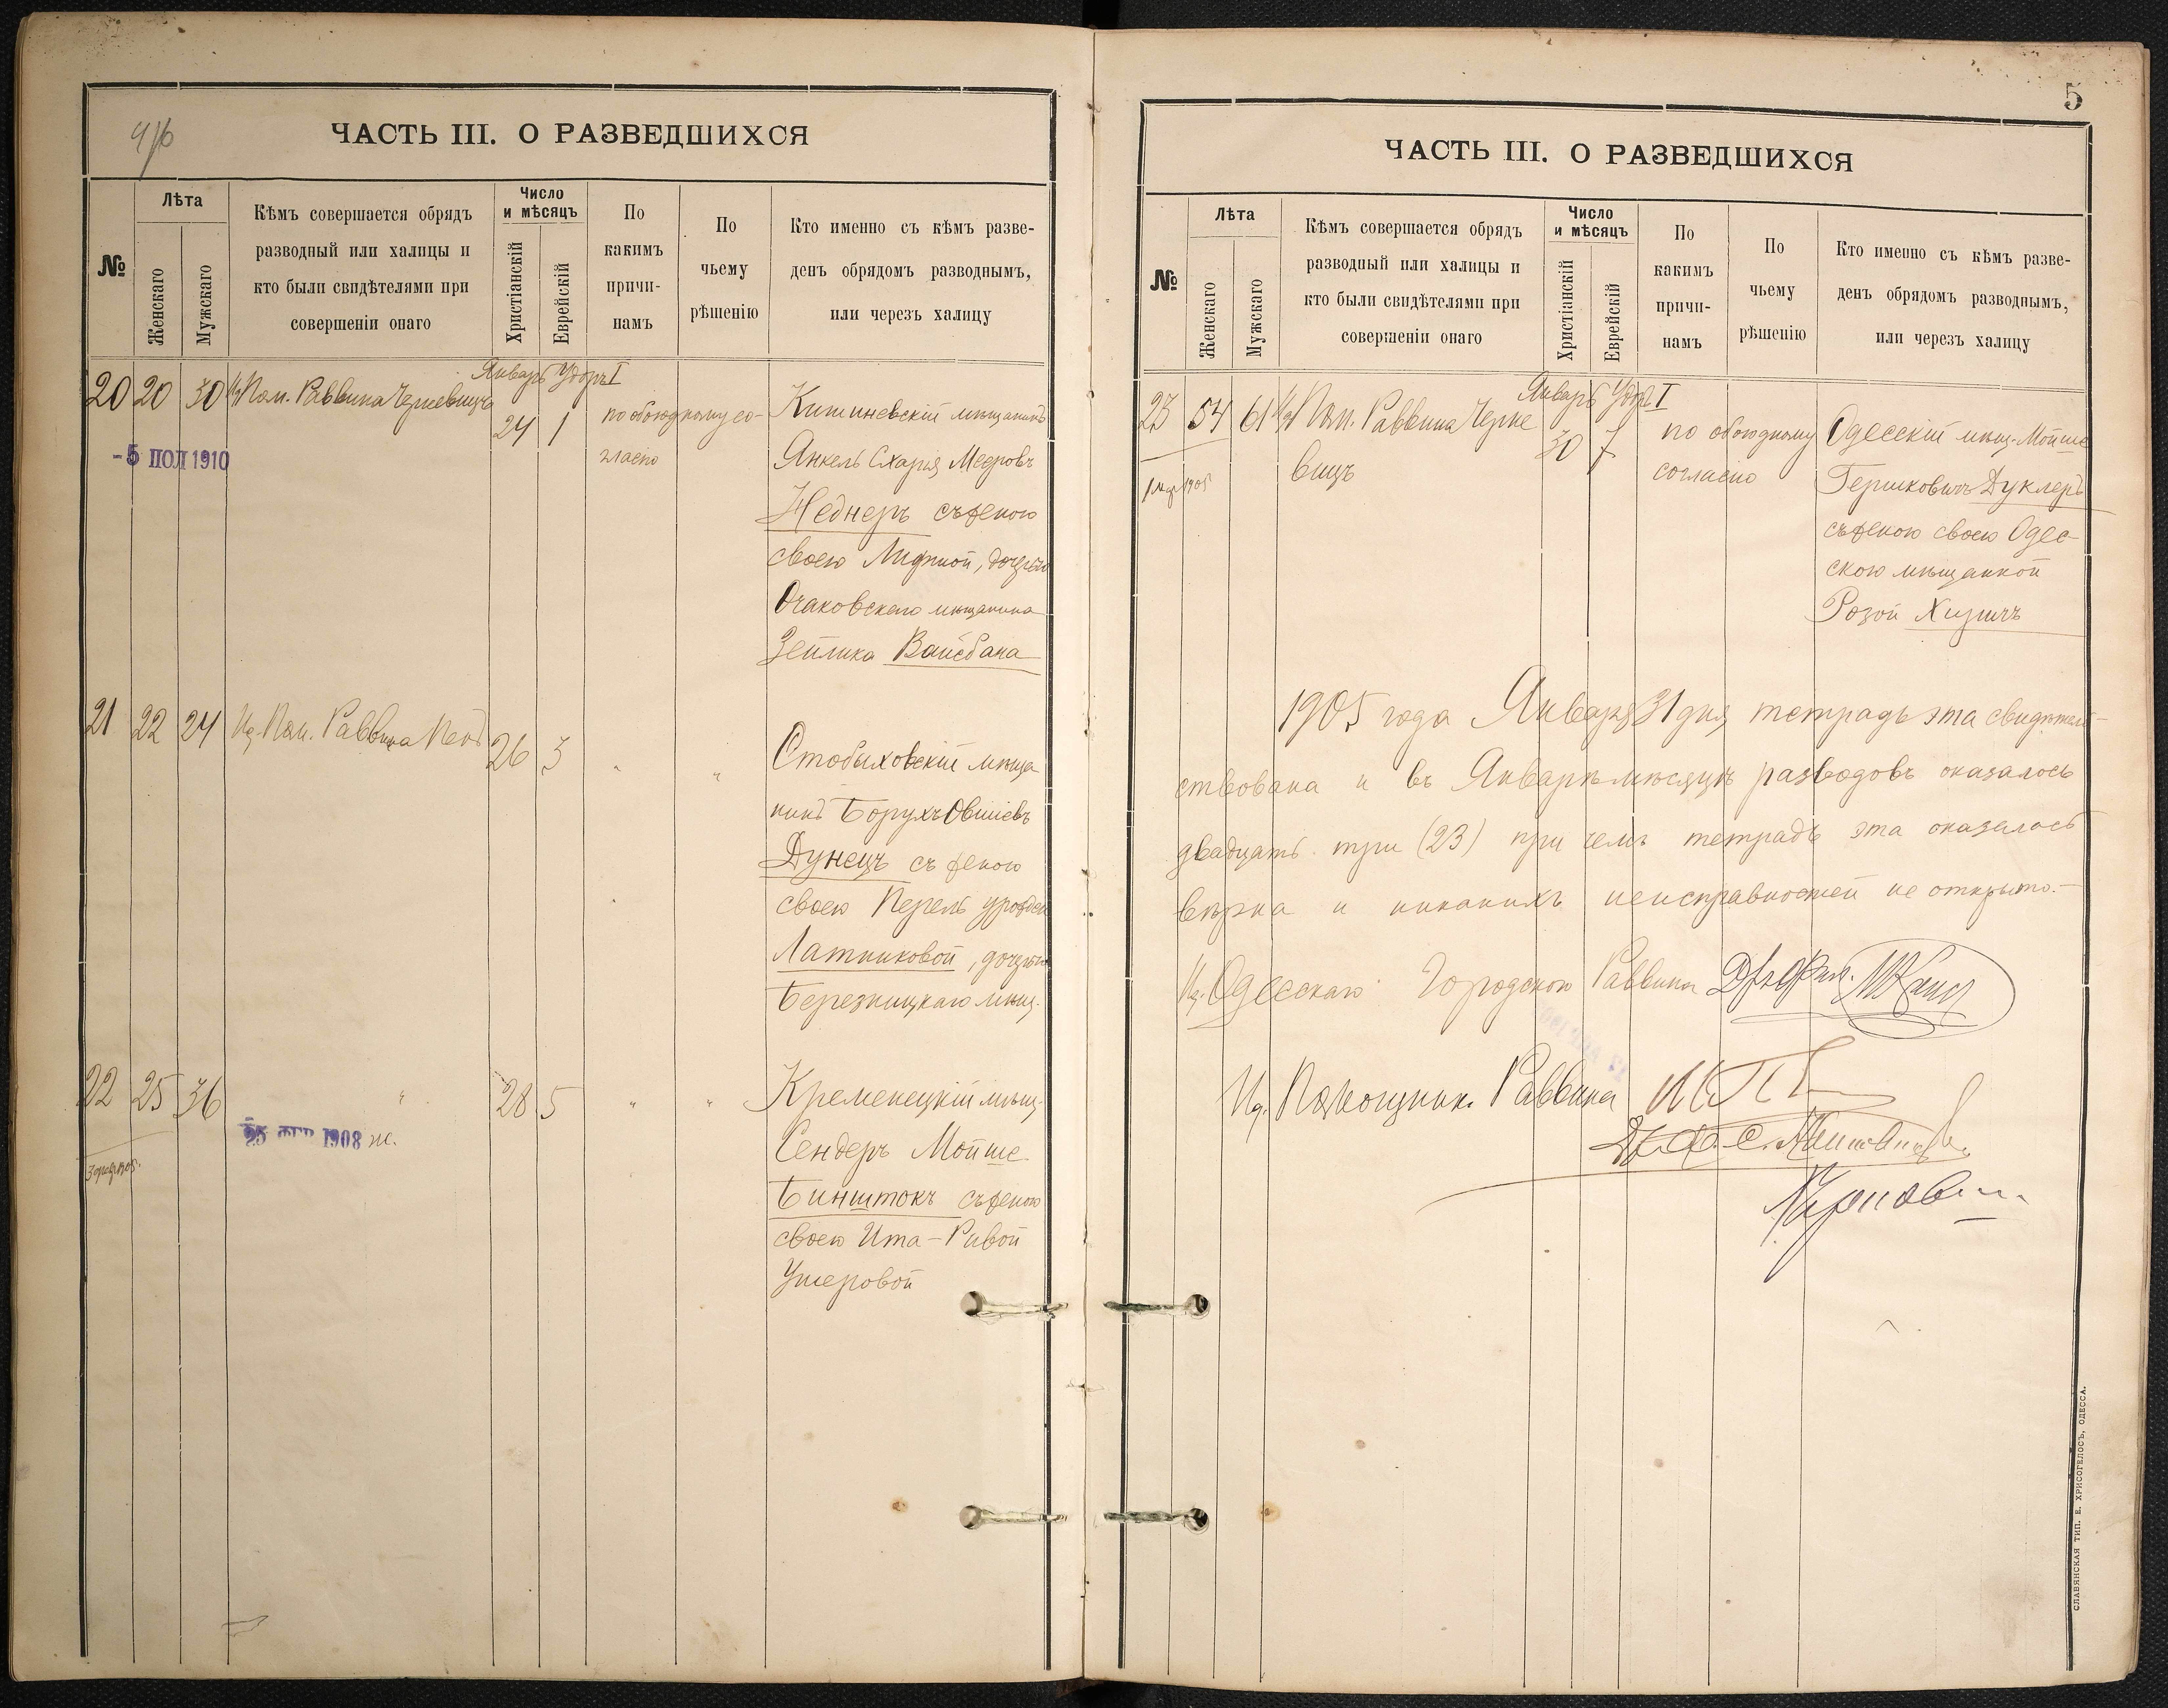 ЧАСТЬ III. О РАЗВЕДШИХСЯ
№
Лѣта
Женскаго
Мужскаго
Кѣмъ совершается обрядъ
разводный или халицы и
кто были свидѣтелями при
совершеніи онаго
Число
и мѣсяцъ
Христіанскій
Еврейскій
По
какимъ
причи-
намъ
По
чьему
рѣшенію
Кто именно съ кѣмъ разве-
денъ обрядомъ разводнымъ,
или черезъ халицу
Январь
20 20 30 Пом. Раввина
24 1
по обоюдному со-
гласію
-5 ІЮЛ 1910
Кишиневскій мѣщанинъ
Янкель Схарія Мееровъ
Неднеръ съ женою
своею дочерью
Очаковскаго мѣщанина
Зейлика Вайсбана
21 22 24 Ид. Пом. Раввина
26 3 " "
Стобыховскій мѣща
нинъ Борухъ Овшіевъ
Дунецъ съ женою
своею Перель урожден
Латниковой, дочерью
Березницкаго мѣщ.
22 25 36 " 28 5 " "
25 ФЕР 1908 ж.
Кременецкій мѣщ.
Сендеръ Мойше
Бинштокъ съ женою
своею Ита-Ривой
Ушеровой
5
ЧАСТЬ III. О РАЗВЕДШИХСЯ
№
Лѣта
Женскаго
Мужскаго
Кѣмъ совершается обрядъ
разводный или халицы и
кто были свидѣтелями при
совершеніи онаго
Число
и мѣсяцъ
Христіанскій
Еврейскій
По
какимъ
причи-
намъ
По
чьему
рѣшенію
Кто именно съ кѣмъ разве-
денъ обрядомъ разводнымъ,
или черезъ халицу
Январь
23 54 61 Пом. Раввина Черне
вицъ
30 7
по обоюдному
согласію
Одесскій мѣщ. Мойше
Гершковичъ Дуклеръ
съ женою своею Одес-
скою мѣщанкой
Розой
1905 года Января 31 дня тетрадь эта свидѣтель-
ствована и въ Январѣ мѣсяцѣ разводовъ оказалось
двадцать три (23) при чемъ тетрадь эта оказалось
вѣрна и никакихъ неисправностей не открыто.—
Ид. Одесскаго Городского Раввина
Ид. Помощник. Раввина
СЛАВЯНСКАЯ ТИП. Е. ХРИСОГЕЛОСЪ, ОДЕССА.